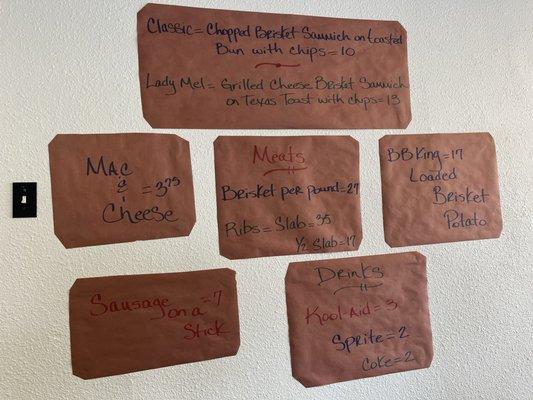 Classic = Chopped Brisket Sammich on toasted
Bun with chips = 10
Lady Mel = Grilled Cheese Brisket Sammich
on Texas Toast with chips = 13
Mac
& = 3.75
Cheese
Meats
Brisket per pound = 27
Ribs = Slab = 35
1/2 Slab = 17
BBKing = 17
Loaded
Brisket
Potato
Sausage = 7
on a
Stick
Drinks
Kool-Aid = 3
Sprite = 2
Coke = 2